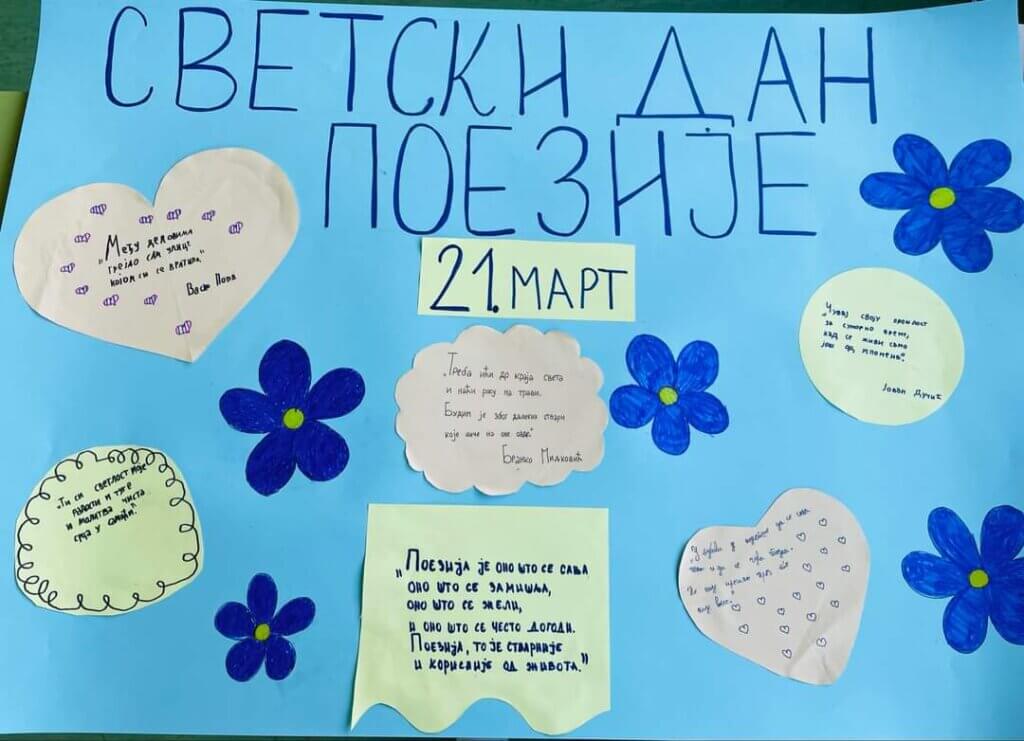 СВЕТСКИ ДАН
ПОЕЗИЈЕ
21. МАРТ
„Међу дланова
грејао сам улице
којом си се вратила."
Васко Попа
„Треба ићи до краја света
и наћи росу на трави.
Будим је због далеких ствари
које личе на ове овде."
Бранко Миљковић
„Чувај своју прошлост
за суморно време,
кад се живи само
још од успомена".
Јован Дучић
„Ти си светлост моје
радости и туге
и молитва чиста
срца у самоћи."
„Поезија је оно што се сања
оно што се замишља,
оно што се жели,
и оно што се често догоди.
Поезија, то је стварније
и корисније од живота."